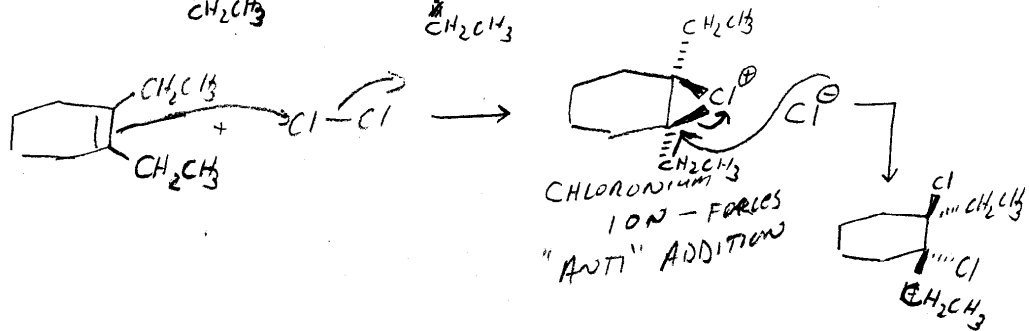 CH₂CH₃ CH₂CH₃
CH₂CH₃
CH₂CH₃ Cl⊕
+ Cl—Cl Cl⊖
CH₂CH₃ CH₂CH₃
CHLORONIUM
ION - FORCES
"ANTI" ADDITION
Cl
CH₂CH₃
Cl
CH₂CH₃